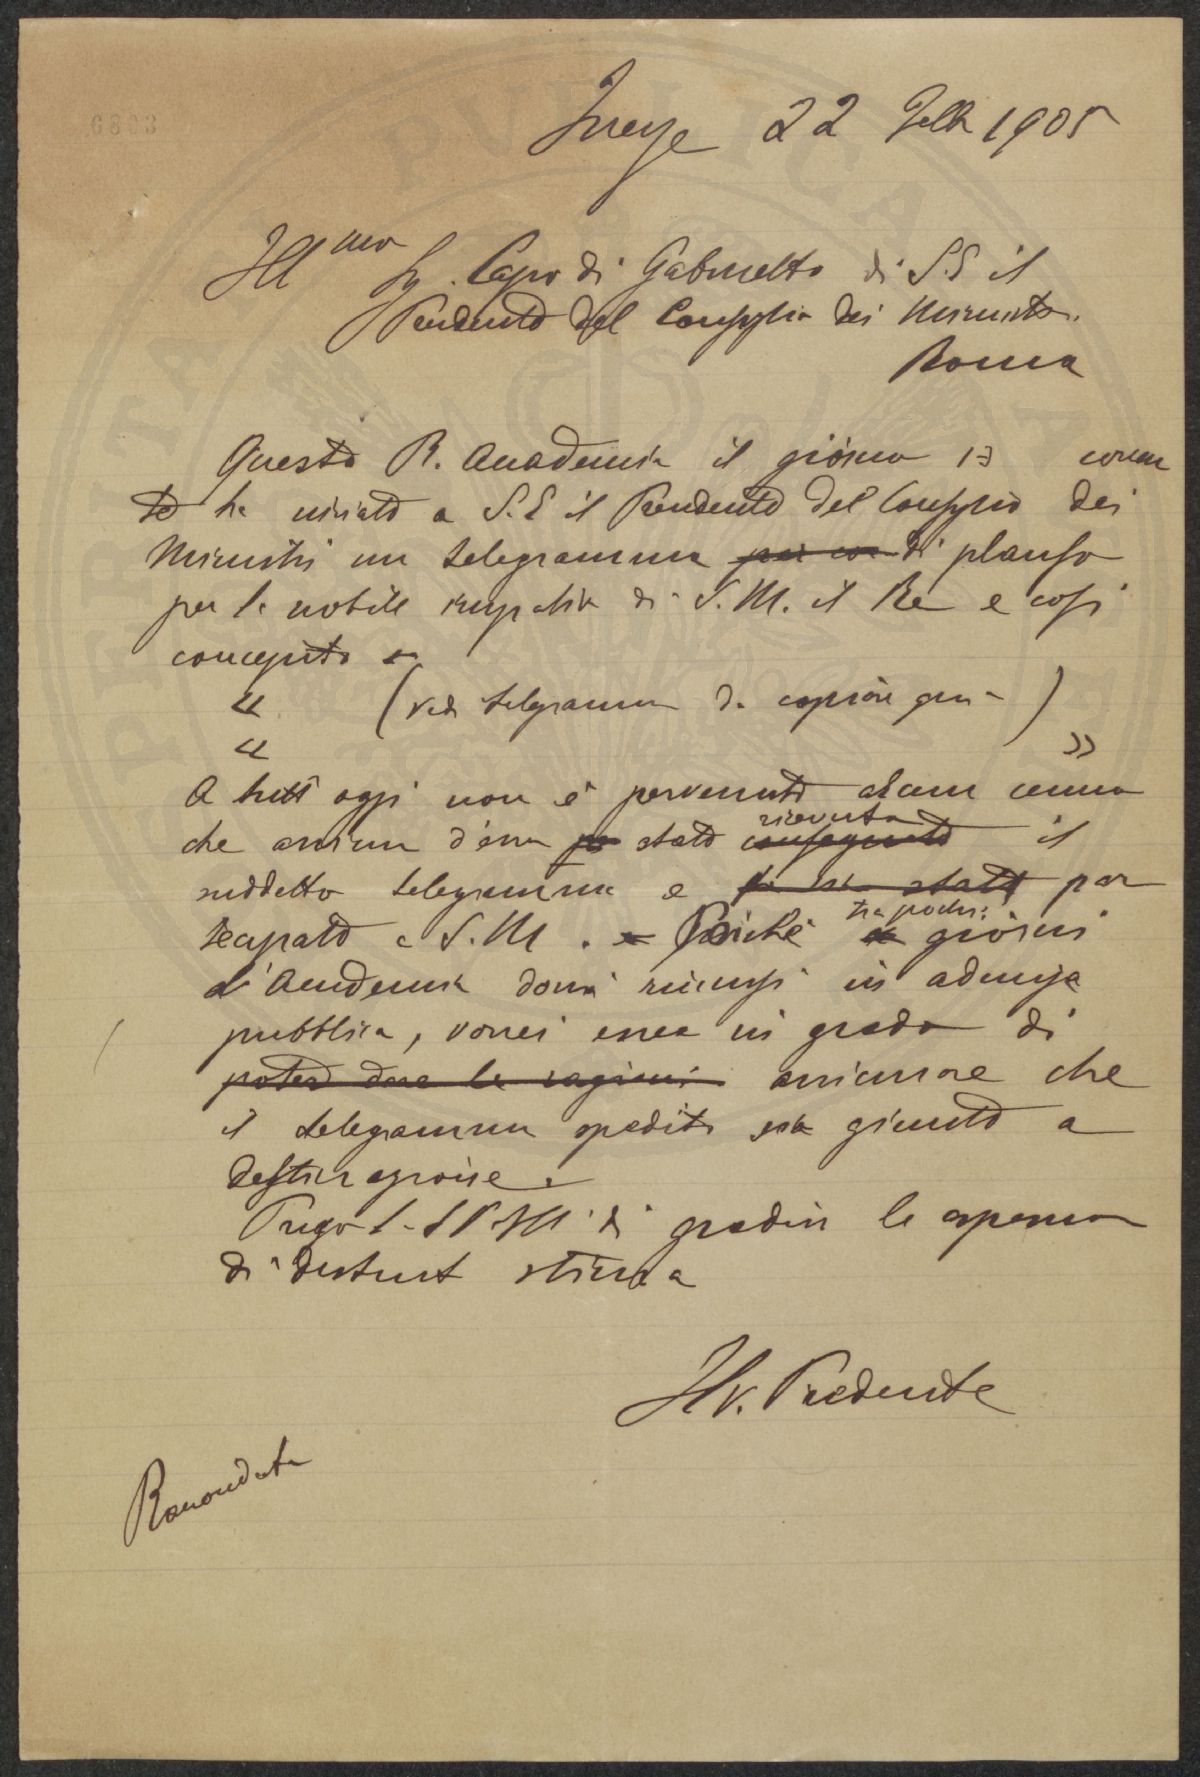 Firenze 22 Febb 1905
Ill mo Sig. Capo di Gabinetto di S.E il
Presidente del Consiglio dei Ministri.
Roma
Questa R. Accademia il giorno 13 corren
te ha inviato a S.E il Presidente del Consiglio dei
Ministri un telegramma di plauso
per la nobile iniziativa di S.M. il Re e così
concepito
« (vedi telegramma da copiare )
« »
A tutt'oggi non è pervenuto alcun cenno
che assicuri d'esser stato ricevuto consegnato il
suddetto telegramma e sia stato par
tecipato a S.M. Poichè tra pochi giorni
l'Accademia dovrà riunirsi in adunanza
pubblica, vorrei essere in grado di
poter dare le ragioni assicurare che
il telegramma spedito sia giunto a
destinazione.
Prego la S.V. Ill di gradire le espressioni
di distinta stima
Il V. Presidente
Raccomandata
6803